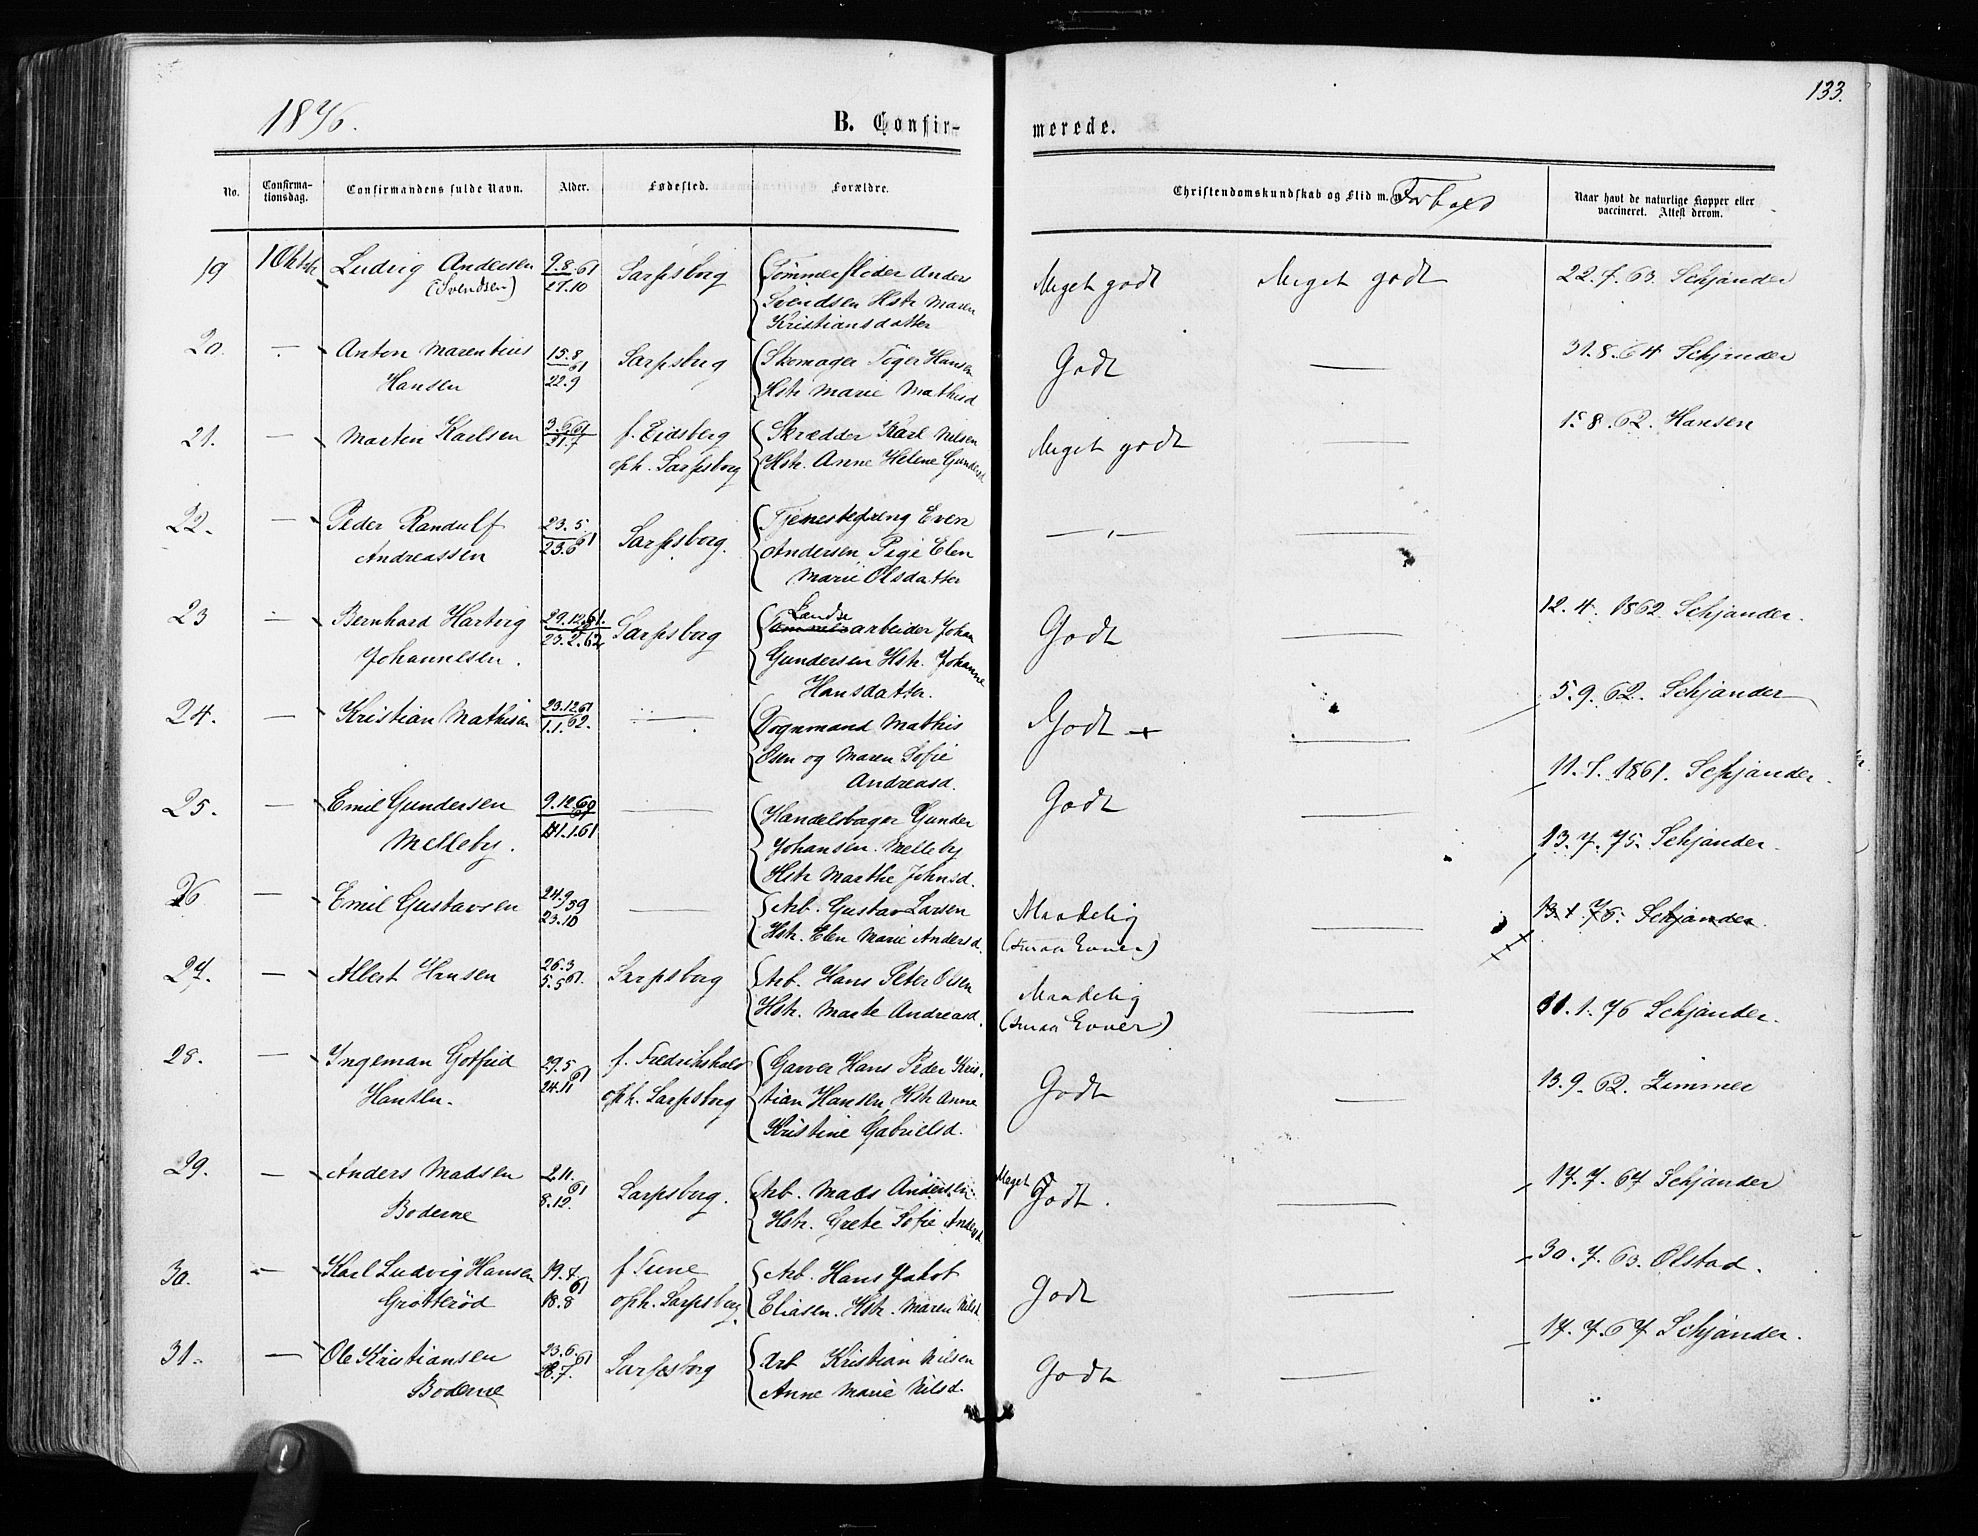 133.
1876.
B. Confir-
merede.
No. Confirma-tionsdag. Confirmandens fulde Navn. Alder. Fødested. Forældre. Christendomskundskab og Flid m. m. Forhold Naar havt de naturlige Kopper eller vaccineret. Attest derom.
19 1 Oktbr Ludvig Andersen 9.8.61 Sarpsborg Tømmerflider Anders Meget godt Meget godt 22.7.63. Schjander
(Svendsen) 27.10 Svendsen Hstr Maren
Kristiansdatter
20. — Anton Marentius 15.8 61 Sarpsborg Skomager Hansen Godt — 31.8.64 Schjander
Hansen 22.9 Hstr Marie Mathisd
21. — Martin Karlsen 3.6.61 f. Eidsberg Skrædder Karl Nilsen Meget godt — 15.8.62. Hansen
31.7 oph. Sarpsborg Hstr. Anne Helene Gundersd
22. — Peder Randulf 23.5. 61 Sarpsborg. Even — " —
Andreassen 23.6 Andersen, Pige Elen
Marie Olsdatter
23 — Bernhard Hartvig 29.12.61. Sarpsborg Landse arbeider Johan Godt — 12.4.1862 Schjander.
Johannesen. 23.2.62 Gundersen Hstr. Johanne
Hansdatter.
24. — Kristian Mathisen 23.12.61 — Vognmand Mathis Godt — 5.9.62. Schjander
1.1.62. Osen og Maren Sofie
Andreasd.
25. — Emil Gundersen 9.12.60 — Gunder Godt — 11.7.1861. Schjander.
Melleby. 1.1.61. Johansen Melleby
Hstr Marthe Johnsd.
13.7.75. Schjander.
26 — Emil Gustavsen 24.9 59 — Arb. Gustav Larsen Maadelig — 13.1.76. Schjander.
23.10 Hstr. Elen Marie Andersd. (smaa Evner)
27. — Albert Hansen 26.3 61. Sarpsborg Arb. Hans Peter Olsen Maadelig — 11.1.76 Schjander.
5.5 Hstr. Marte Andreasd. (smaa Evner)
28. — Ingeman Gotfried 29.5 61 f. Fredrikshald Garver Hans Peder Kris- Godt — 13.9.62. Zimmer
Hansen. 24.11 oph. Sarpsborg tian Hansen, Hstr Anne
Kristine Gabrielsd.
29. — Anders Madsen 2.11. 61 Sarpsborg. Arb. Mads Andersen Meget Godt. — 17.7.67 Schjander
Boderne 8.12. Hstr. Grete Sofie Andersd.
30. — Karl Ludvig Hansen 19.7 61 f. Tune Arb. Hans Jakob Godt — 30.7.63. Olstad.
Grøtterød 18.8 oph. Sarpsborg Eliasen. Hstr. Maren Nilsd.
31. — Ole Kristiansen 23.6. 61 Sarpsborg Arb Kristian Nilsen Godt — 17.7.67 Schjander.
Boderne 28.7. Anne Marie Nilsd.